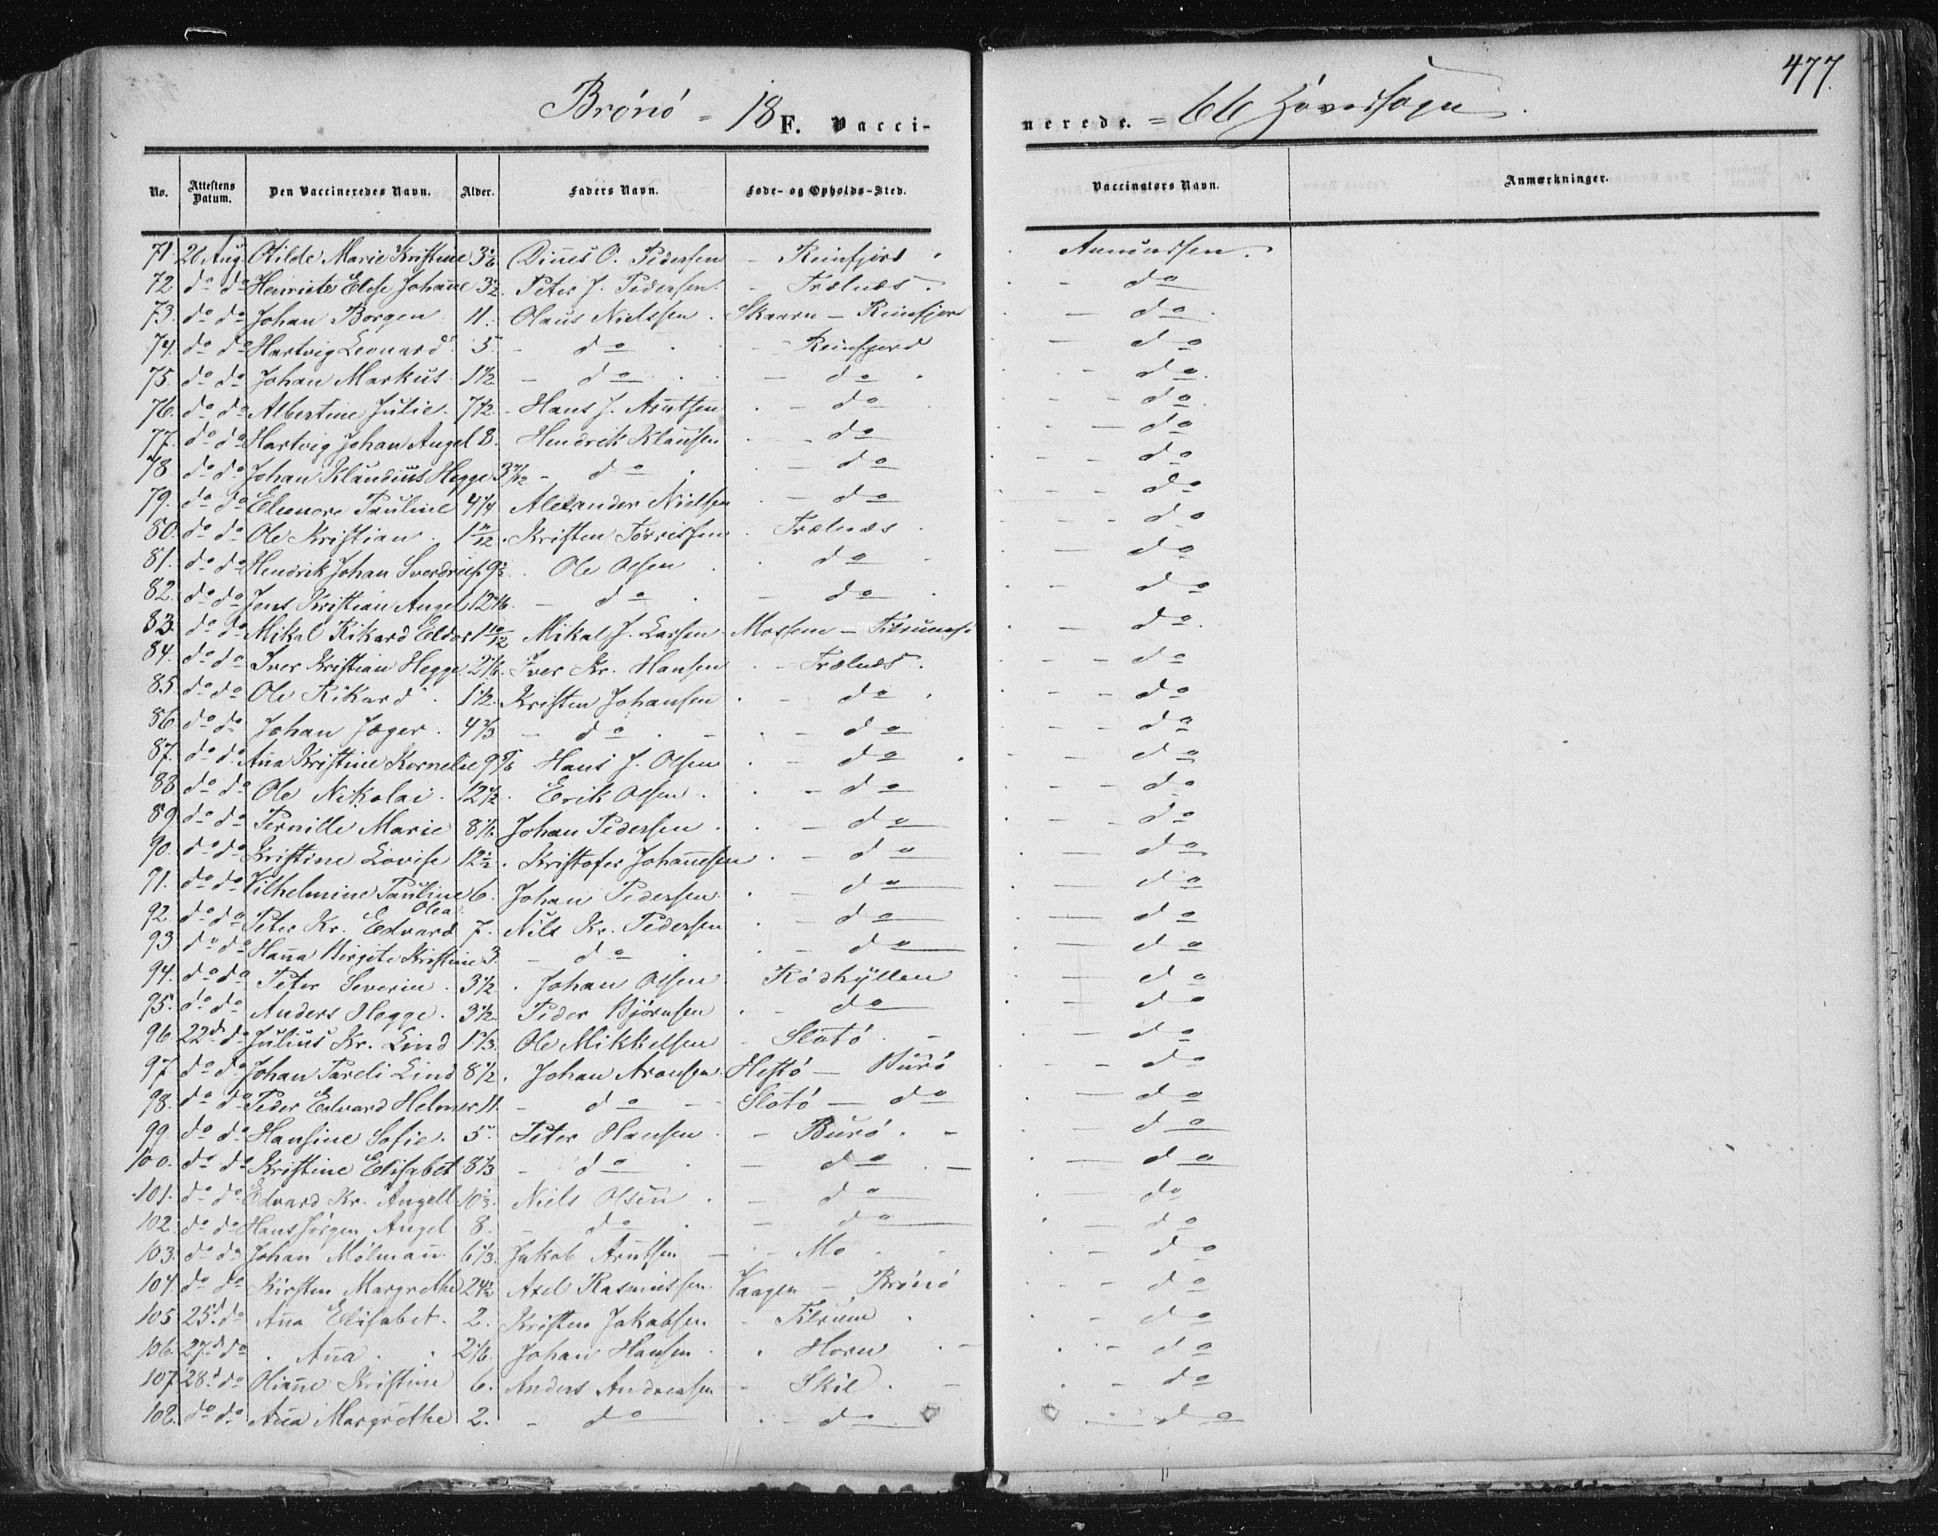 477.
Brønø = 18 F. Vacci-nerede. = 66 Hovedsogn.
No. Attestens Datum. Den Vaccineredes Navn. Alder. Faders Navn. Føde- og Opholds-Sted. Vaccinators Navn. Anmærkninger.
71 20 Aug Otilde Marie Kristine Dines O. Pedersen - Reinfjord Amundsen.
72 do do Henriete Elise Johane 3½ Peter J. Pedersen - Trælnæs. do
73. do do Johan Borgen 11. Olaus Nielssen. Skaarn - Reinfjord do
74. do do Hartvig Leonard 5 - do - Reinfjord do
75. do do Johan Markus 1½ - do - do do
76. do do Albertine Julie 7½ - Hans J. Arntsen - do do
77. do do Hartvig Johan Angel 8. Hendrik Klausen - do do
78 do do Johan Klaudius Hegge - do - do do
79. do do Eleonore Pauline 4¼ Alexander Nielsen - do do
80. do do Ole Kristian Kristen Tørrissen Trælnæs do
81. do do Hendrik Johan Sverdrup Ole Olsen do do
82. do do Jens Kristian Angel - do - do do
83. do do Mikal Rikard Eldor 1 10/12 Mikal J. Larsen Mossem - do
84. do do Iver Kristian Hegge 2⅙. Iver Kr. Hansen - Trælnæs. do
85. do do Ole Rikard 1½. Kristen Johansen - do do
86. do do Johan Jæger. 4⅔ - do - do do
87. do do Ana Kristine Kornelie 9⅚ Hans J. Olsen - do do
88 do do Ole Nikolai 12½. Erik Olsen. - do do
89 do do Pernille Marie Johan Pedersen. - do do
90. do do Kristine Lovise 12½. Kristofer Johanesen - do do
91. do do Vilhelmine Pauline Olea 6. Johan Pedersen - do do
92. do do Peter Kr. Edvard 7. Nils Kr. Pedersen - do do
93 do do Hana Birgite Kristine 3. - do - do do
94. do do Peter Severin. 3½. Johan Olsen Rødhyllen do
95. do do Anders Hegge. 3½. Peder Bjørnsen - do do
96 22d do Julius Kr. Lind 1⅓. Ole Mikkelsen - Slotø. do
97 do do Johan Pareli Lind 8½. Johan Aronsen Hestø - Burø do
98. do do Peder Edvard Helmer 11. - do - Slotø - do do
99. do do Hansine Sofie. 5. Peter Hansen - Burø. do
100. do do Kristine Elisabet 8⅓ - do - do do
101. do do Edvard Kr. Angell 10⅓. Niels Olsen - do do
102. do do Hans Jørgen Angel 8. - do - do do
103. do do Johan Molman. 6⅓. Jakob Arntsen - Mo do
104. do do Kirsten Margrethe 2½ Axel Rasmussen. Vaagen - Brønø do
105 25d do Ana Elisabet. 2. Kristen Jakobsen - Tilrum do
106. 27d do Ana 2⅙. Johan Hansen. Horn do
107 28d do Oliane Kristine 6. Anders Andreasen - Skil. do
108. do do Ana Margrethe 2. - do - do do